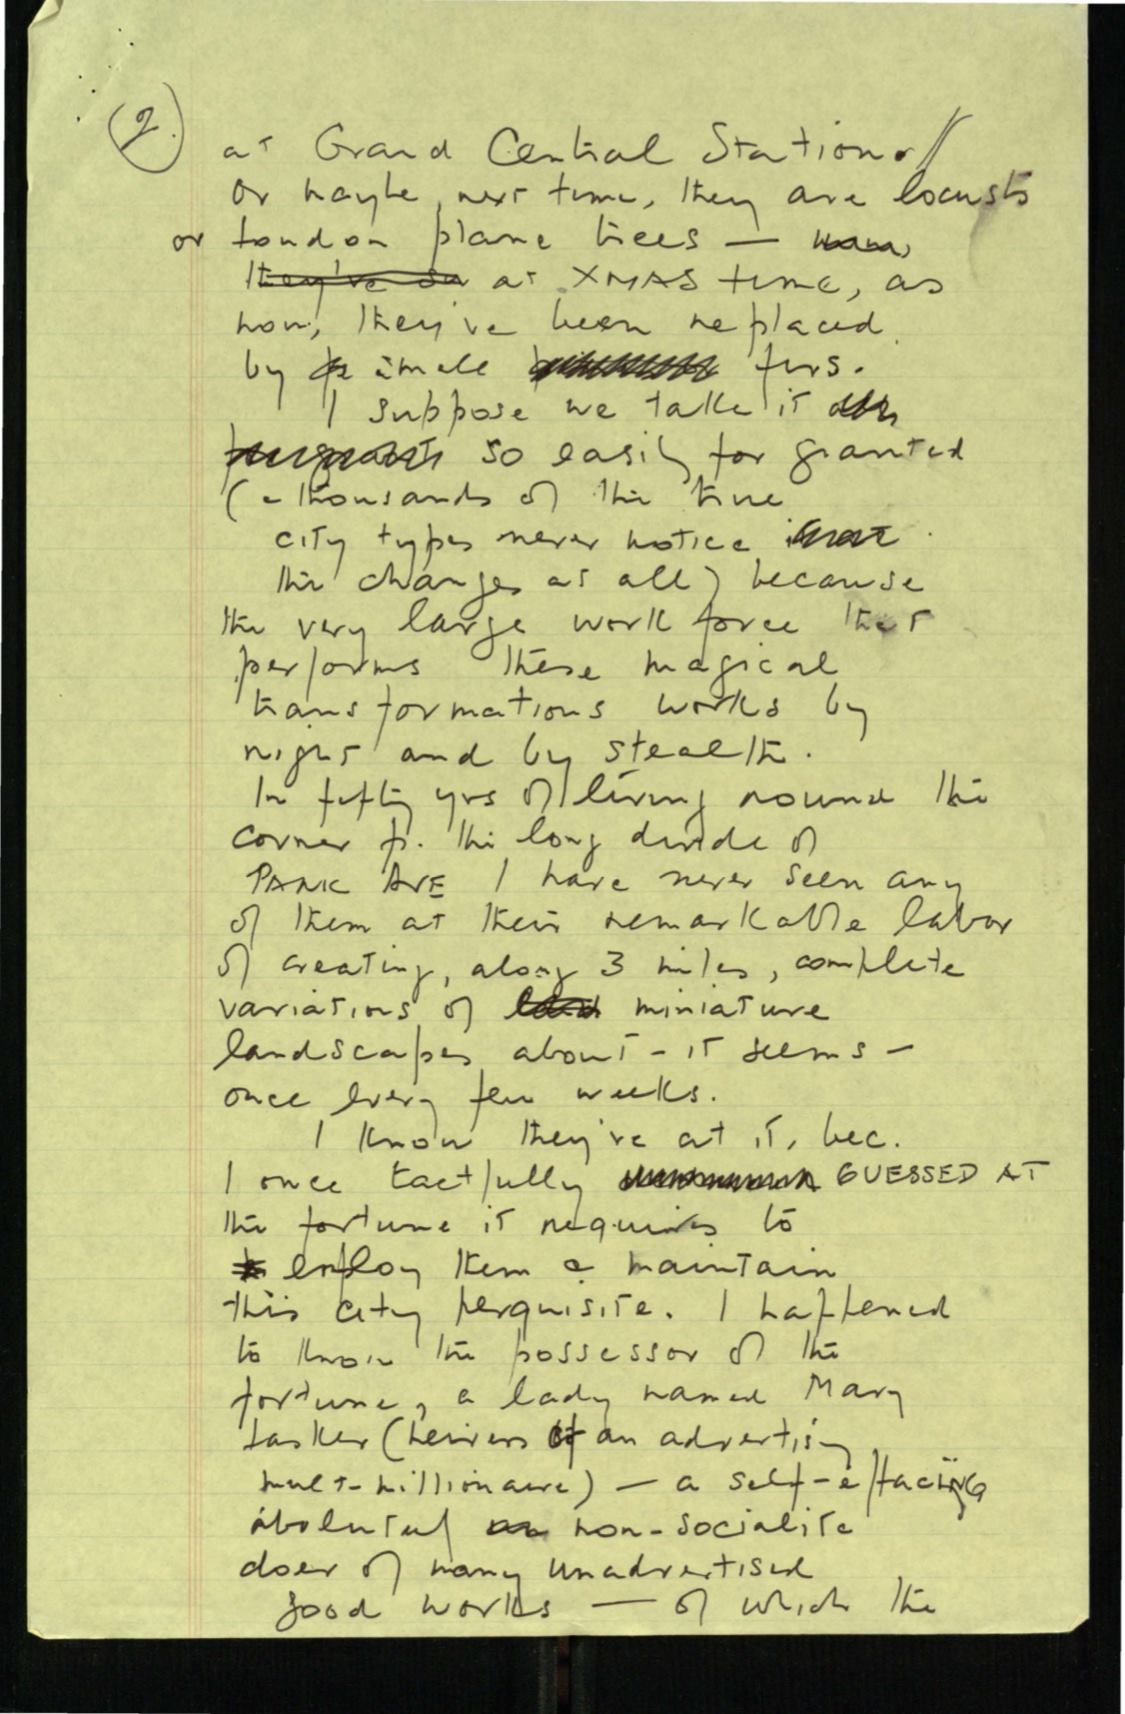 (2.)
at Grand Central Station. //
Or maybe, next time, they are locusts
or London plane trees —
they've at XMAS time, as
now, they've been replaced
by small firs.
I suppose we take it
so easily for granted
(& thousands of the true
city types never notice
the changes at all) because
the very large work force that
performs these magical
transformations works by
night and by stealth.
In fifty yrs of living round the
corner fr. the long divide of
PARK AVE I have never seen any
of them at their remarkable labor
of creating, along 3 miles, complete
variations of miniature
landscapes about - it seems -
once every few weeks.
I know they're at it, bec.
I once tactfully GUESSED AT
the fortune it requires to
employ them & maintain
this city perquisite. I happened
to know the possessor of the
fortune, a lady named Mary
Lasker (heiress of an advertising
mult-millionaire) — a self-effacing
absolutely non-socialite
doer of many unadvertised
good works — of which the